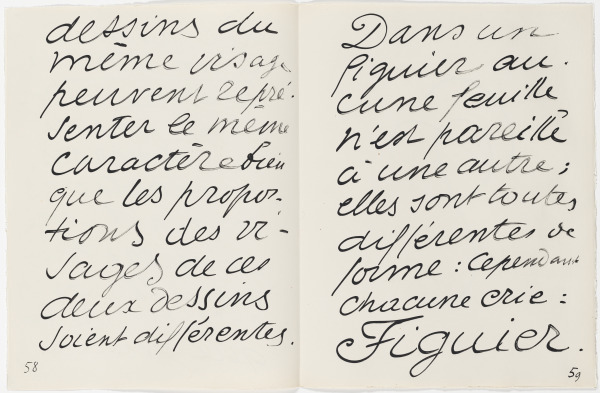 dessins du
même visage
peuvent repré-
senter le même
caractère bien
que les propor-
tions des vi-
sages de ces
deux dessins
soient différentes.
58
Dans un
figuier au-
cune feuille
n'est pareille
à une autre ;
elles sont toutes
différentes de
forme : Cependant
chacune crie :
Figuier.
59